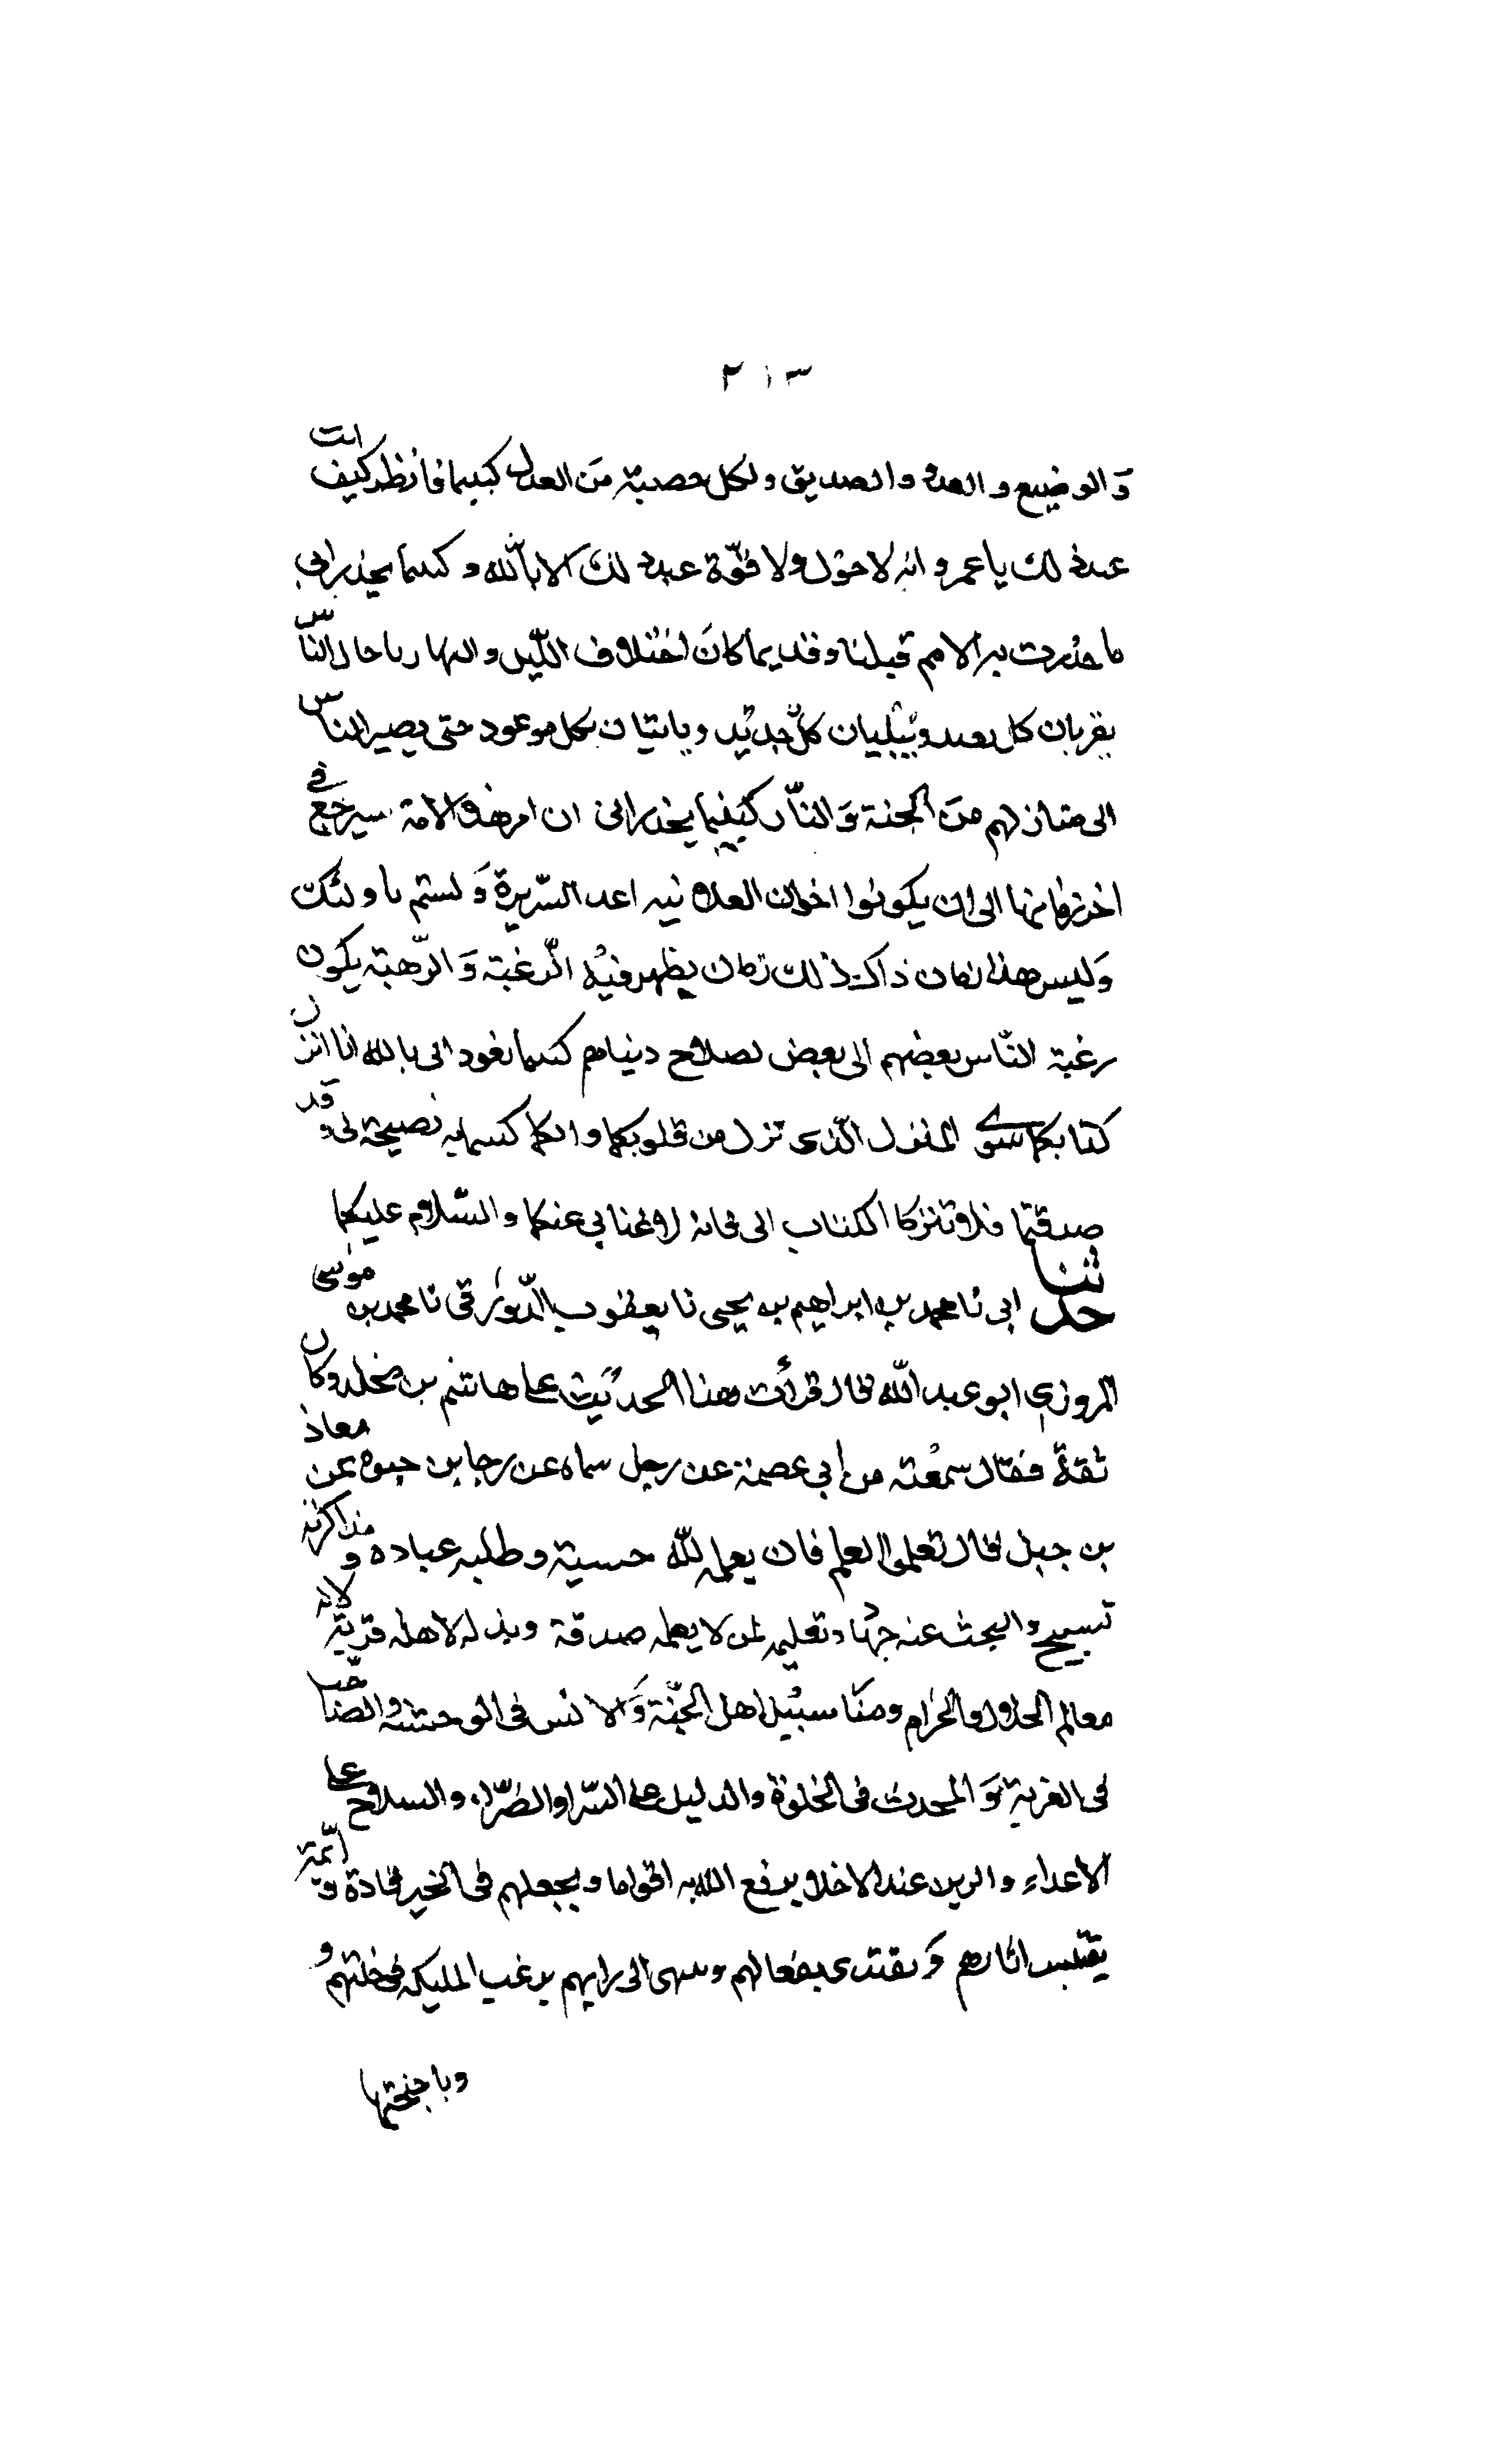 ٢١٣
وَالوضيع والعدو والصديق ولكل حصبة من العدل كتبتما فانظر كيف انت
عند ذلك يا عمر وانه لا حول ولا قوّة عند ذلك الا بالله وكتبتما تحذراني
ما حذرت به الامم قبلنا وقديما كانَ اختلاف اللّيل والنهار باجال النّاس
يقربان كل بعيد ويبليان كلّ جديد وياتيان بكل موعود حتى يصير الناس
الى منازلهم منَ الجنة وَالنّار كتبتما تحذراني ان امر هذه الامة سيرجع في
اخر زمانها الى ان يكونوا اخوان العلانيه اعداء السّريرة وَلستم باولئك
وَليس هذا زمان ذاك ذلك زمان يظهر فيه الرّغبة وَالرّهبة يكون
رغبة النّاس بعضهم الى بعض لصلاح دنياهم كتبتما نعوذ الى بالله انا انزل
كتابكما سوى المنزل الّذى نزل من قلوبكما وانكما كتبتما به نصيحة لى وقد
صدقتما فلا تتركا الكتاب الى فانه لا غنا بى عنكما والسّلام عليكما
حدثنا ابى نا محمد بن ابراهيم بن يحيى نا يعقوب الدّورقى نا محمد بن موسى
المروزى ابو عبد الله قال قرأت هذا الحديث على هاشم بن مخلد وكان
ثقة فقال سمعته من ابى عصمة عن رجل سماه عن رجا بن حيوه عن معاذ
بن جبل قال تعلموا العلم فان يعلمه للّه حسية وطلبه عباده و مذاكرته
تسبيح والبحث عنه جهاد وتعليمه لمن لا يعلمه صدقة وبذله لاهله قربة لانه
معالم الحلال والحرام ومنا سبيل اهل الجنّة وَالانس فى الوحشه والصّاحب
فى الغربة وَالمحدث فى الخلوة والدليل على السّرا والضّراء والسلاح على
الاعداء والزين عند الاخلا يرفع الله به اقواما ويجعلهم فى الخير قادة و ائمة
يقتبس اثارهم وَيقتدى بفعالهم وينتهى الى رايهم يرغب المليكه فى خلتهم و
وباجنحتها